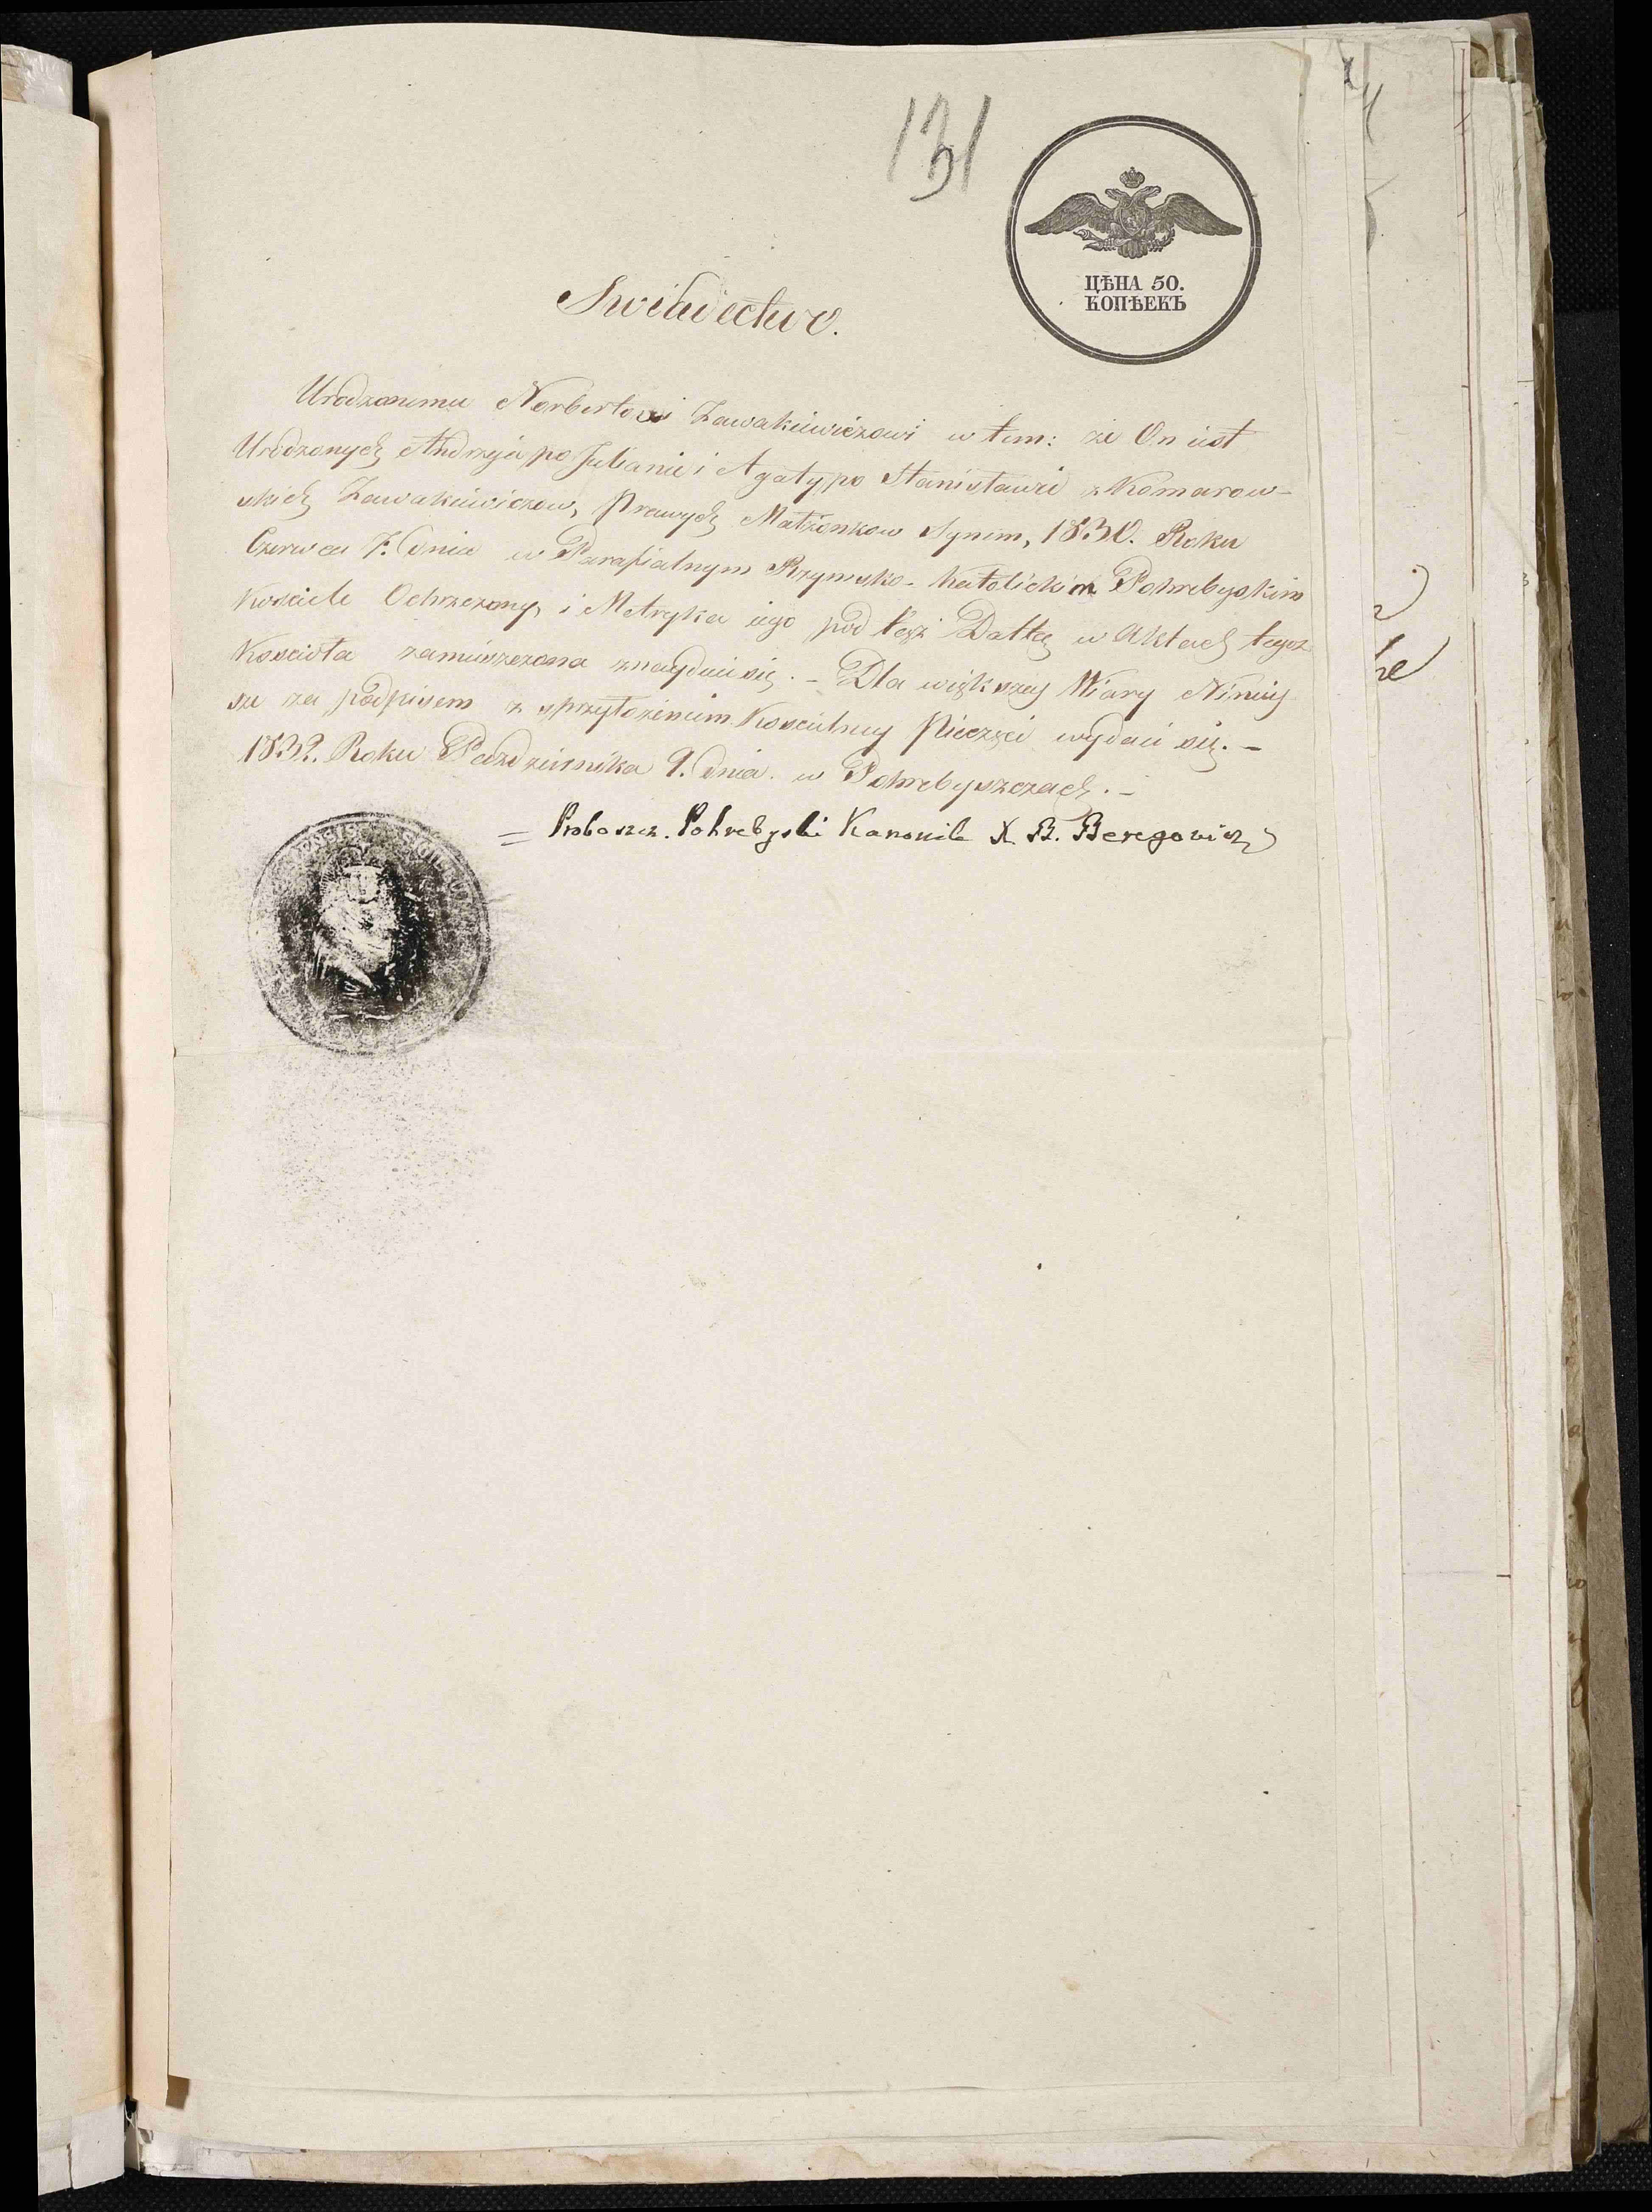 131
ЦѢНА 50.
КОПѢЕКЪ
Swiadectwo.
Urodzonemu Norbertowi Zawakiewiczowi w tem: że On iest
Urodzonych Andrzeja po Julianie i Agaty po Stanisławie z Komarow-
skich Zawakiewiczow, Prawych Małżonkow Synem, 1830. Roku
Czerwca 7. dnia w Parafialnym Rzymsko-Katolickim Pohrebyskim
Kosciele Ochrzczony, i Metryka iego pod tęż Dattą w Aktach tegoż
Koscioła zamieszczona znayduie się. - Dla większey Wiary Niniey
sze za podpisem z przyłożeniem Koscielney Pieczęci wydaie się. -
1832. Roku Pazdziernika 9. dnia. w Pohrebyszczach. -
= Proboszcz. Pohrebyski Kanonik X. B. Beregowicz